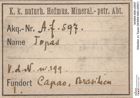 K. k. naturh. Hofmus. Mineral.-petr. Abt.
Akq.-Nr. A.f. 597.
Name Topas
V.d.N. w 199.
Fundort Capao, Brasilien